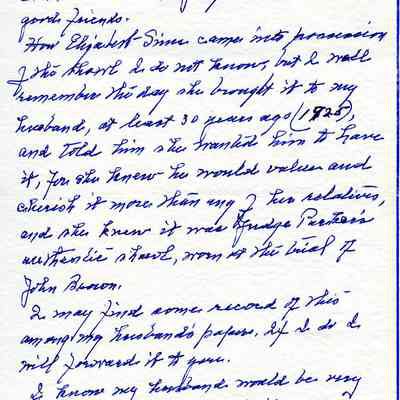 good friends.
How Elizabeth Simms came into possession
of the shawl I do not know, but I well
remember the day she brought it to my
husband, at least 30 years ago (1925),
and told him she wanted him to have
it, for she knew he would value and
cherish it more than any of her relatives,
and she knew it was Judge Parker's
authentic shawl, worn at the trial of
John Brown.
I may find some record of this
among my husband's papers. If I do I
will forward it to you.
I know my husband would be very